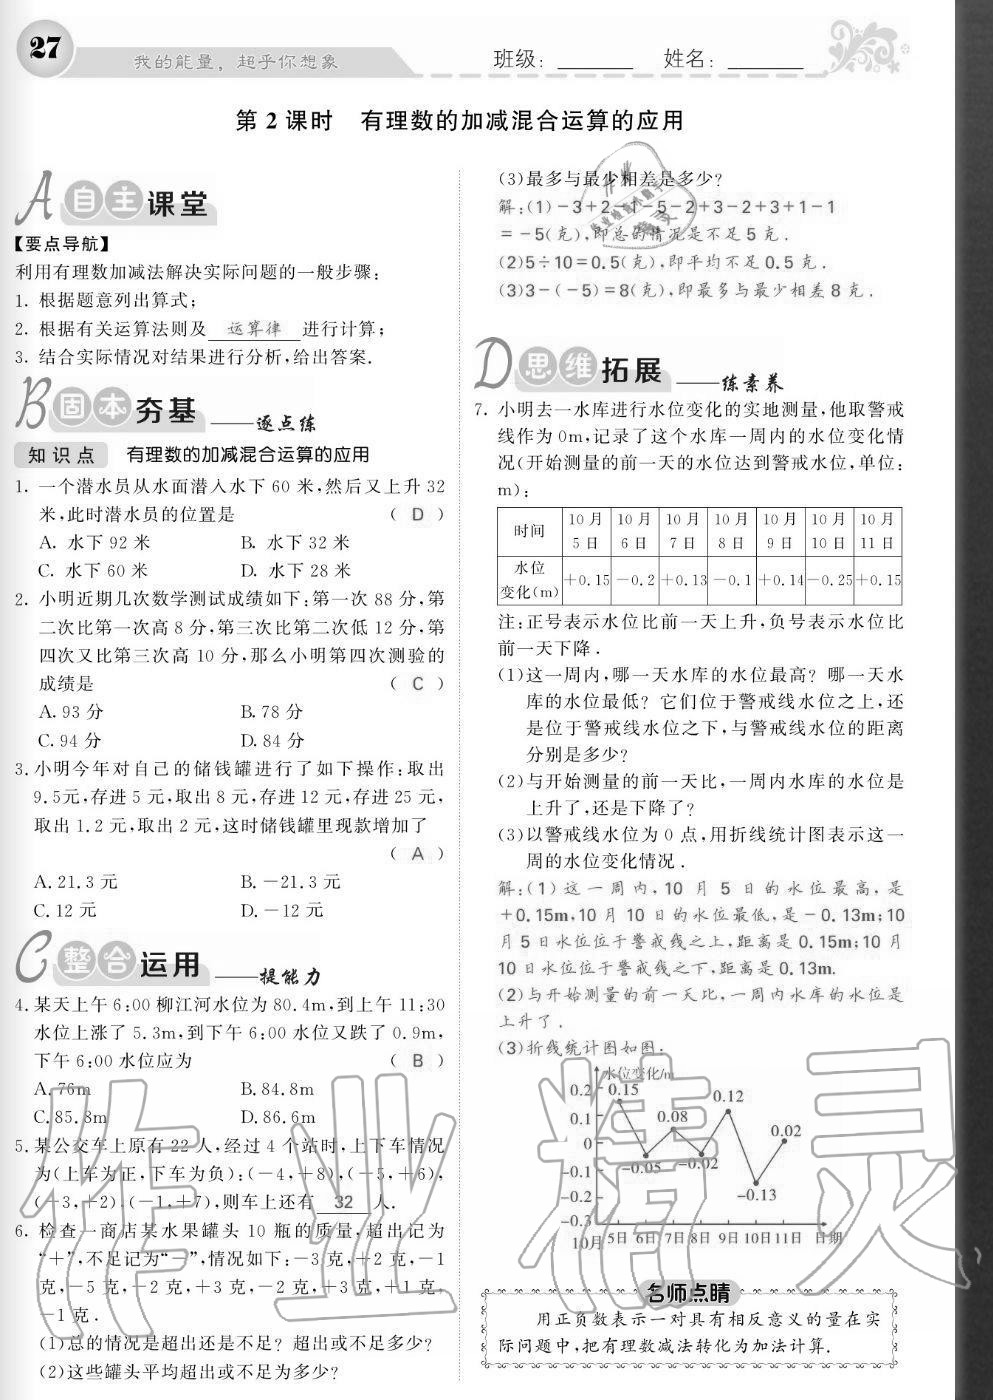 27
我的能量，超乎你想象
班级：______ 姓名：______
第 2 课时 有理数的加减混合运算的应用
A 自主课堂
【要点导航】
利用有理数加减法解决实际问题的一般步骤：
1. 根据题意列出算式；
2. 根据有关运算法则及 运算律 进行计算；
3. 结合实际情况对结果进行分析，给出答案.
B 固本夯基 ——逐点练
知识点 有理数的加减混合运算的应用
1. 一个潜水员从水面潜入水下 60 米，然后又上升 32
米，此时潜水员的位置是 （ D ）
A. 水下 92 米 B. 水下 32 米
C. 水下 60 米 D. 水下 28 米
2. 小明近期几次数学测试成绩如下：第一次 88 分，第
二次比第一次高 8 分，第三次比第二次低 12 分，第
四次又比第三次高 10 分，那么小明第四次测验的
成绩是 （ C ）
A. 93 分 B. 78 分
C. 94 分 D. 84 分
3. 小明今年对自己的储钱罐进行了如下操作：取出
9.5元，存进 5 元，取出 8 元，存进 12 元，存进 25 元，
取出 1.2 元，取出 2 元，这时储钱罐里现款增加了
（ A ）
A. 21.3 元 B. －21.3 元
C. 12 元 D. －12 元
C 整合运用 ——提能力
4. 某天上午 6:00 柳江河水位为 80.4m，到上午 11:30
水位上涨了 5.3m，到下午 6:00 水位又跌了 0.9m，
下午 6:00 水位应为 （ B ）
A. 76m B. 84.8m
C. 85.8m D. 86.6m
5. 某公交车上原有 22 人，经过 4 个站时，上下车情况
为(上车为正，下车为负)：(－4，＋8)，(－5，＋6)，
(－3，＋2)，(－1，＋7)，则车上还有 32 人.
6. 检查一商店某水果罐头 10 瓶的质量，超出记为
“＋”，不足记为“－”，情况如下：－3 克，＋2 克，－1
克，－5 克，－2 克，＋3 克，－2 克，＋3 克，＋1 克，
－1 克.
(1)总的情况是超出还是不足？超出或不足多少？
(2)这些罐头平均超出或不足为多少？
(3)最多与最少相差是多少？
解：(1)－3＋2－1－5－2＋3－2＋3＋1－1
＝－5(克)，即总的情况是不足 5 克.
(2)5÷10＝0.5(克)，即平均不足 0.5 克.
(3)3－(－5)＝8(克)，即最多与最少相差 8 克.
D 思维拓展 ——练素养
7. 小明去一水库进行水位变化的实地测量，他取警戒
线作为 0m，记录了这个水库一周内的水位变化情
况(开始测量的前一天的水位达到警戒水位，单位：
m)：
时间 10月5日 10月6日 10月7日 10月8日 10月9日 10月10日 10月11日
水位变化(m) ＋0.15 －0.2 ＋0.13 －0.1 ＋0.14 －0.25 ＋0.15
注：正号表示水位比前一天上升，负号表示水位比
前一天下降.
(1)这一周内，哪一天水库的水位最高？哪一天水
库的水位最低？它们位于警戒线水位之上，还
是位于警戒线水位之下，与警戒线水位的距离
分别是多少？
(2)与开始测量的前一天比，一周内水库的水位是
上升了，还是下降了？
(3)以警戒线水位为 0 点，用折线统计图表示这一
周的水位变化情况.
解：(1)这一周内，10 月 5 日的水位最高，是
＋0.15m，10 月 10 日的水位最低，是－0.13m；10
月 5 日水位位于警戒线之上，距离是 0.15m；10 月
10 日水位位于警戒线之下，距离是 0.13m.
(2)与开始测量的前一天比，一周内水库的水位是
上升了.
(3)折线统计图如图：
水位变化/m
0.2 0.15 0.12
0.1 0.08 0.02
0
-0.1 -0.05 -0.02
-0.2 -0.13
-0.3
10月 5日 6日 7日 8日 9日 10日 11日 日期
名师点睛
用正负数表示一对具有相反意义的量在实
际问题中，把有理数减法转化为加法计算.
作业精灵